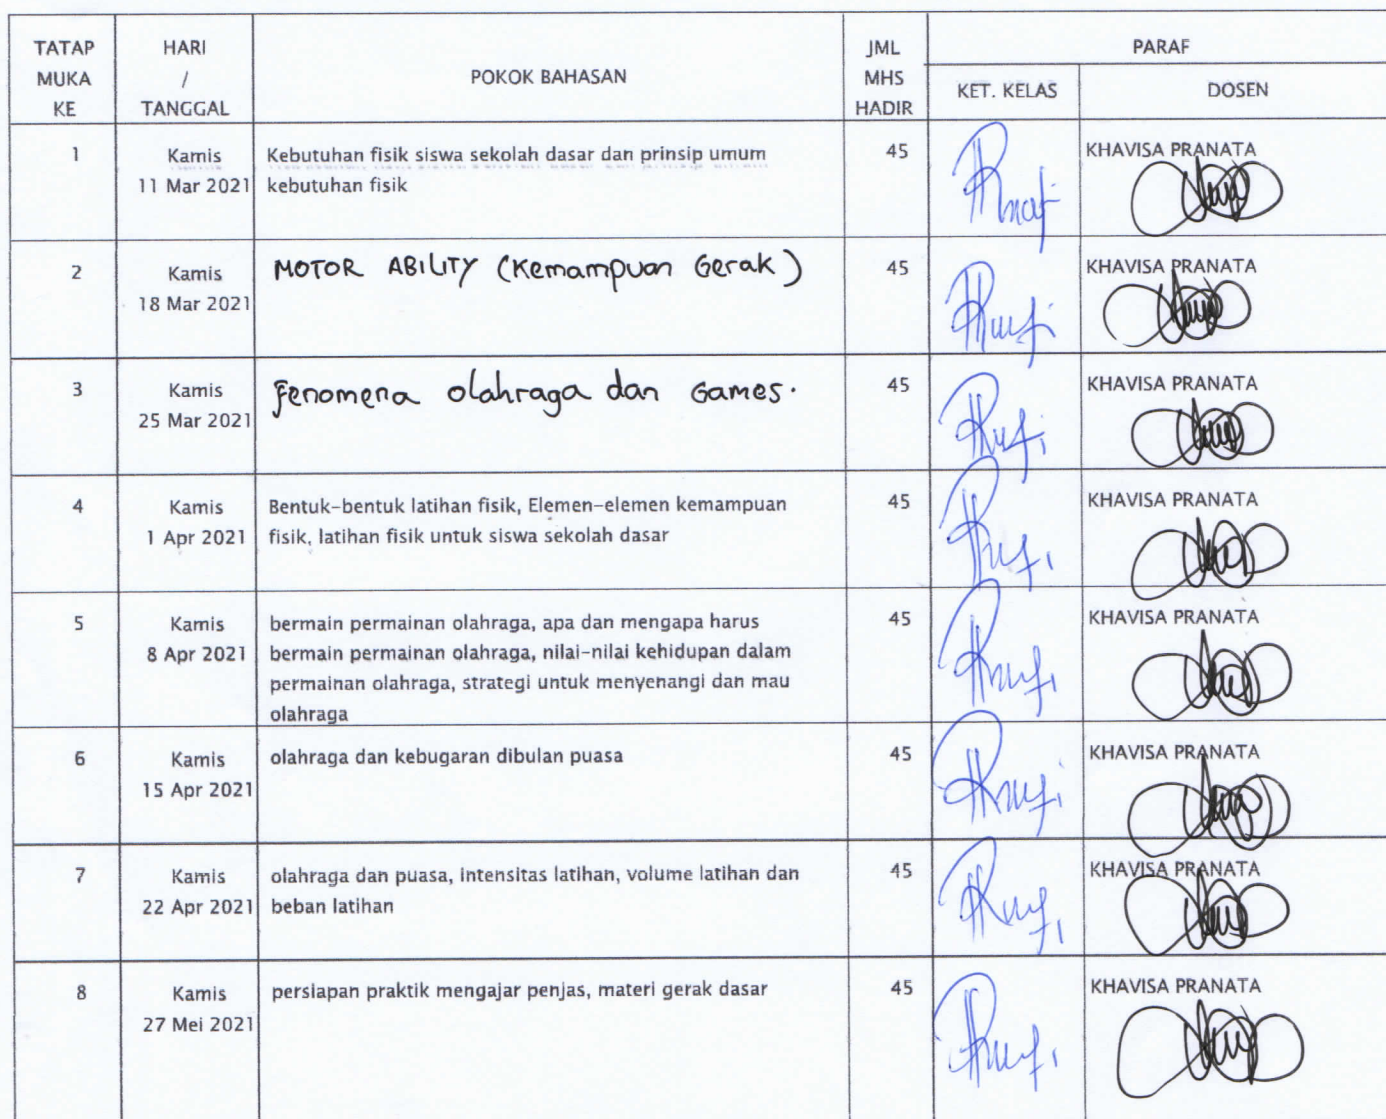 TATAP MUKA KE
HARI / TANGGAL
POKOK BAHASAN
JML MHS HADIR
PARAF
KET. KELAS
DOSEN
1
Kamis
11 Mar 2021
Kebutuhan fisik siswa sekolah dasar dan prinsip umum
kebutuhan fisik
45
KHAVISA PRANATA
2
Kamis
18 Mar 2021
MOTOR ABILITY (Kemampuan Gerak)
45
KHAVISA PRANATA
3
Kamis
25 Mar 2021
Fenomena olahraga dan Games.
45
KHAVISA PRANATA
4
Kamis
1 Apr 2021
Bentuk-bentuk latihan fisik, Elemen-elemen kemampuan
fisik, latihan fisik untuk siswa sekolah dasar
45
KHAVISA PRANATA
5
Kamis
8 Apr 2021
bermain permainan olahraga, apa dan mengapa harus
bermain permainan olahraga, nilai-nilai kehidupan dalam
permainan olahraga, strategi untuk menyenangi dan mau
olahraga
45
KHAVISA PRANATA
6
Kamis
15 Apr 2021
olahraga dan kebugaran dibulan puasa
45
KHAVISA PRANATA
7
Kamis
22 Apr 2021
olahraga dan puasa, intensitas latihan, volume latihan dan
beban latihan
45
KHAVISA PRANATA
8
Kamis
27 Mei 2021
persiapan praktik mengajar penjas, materi gerak dasar
45
KHAVISA PRANATA